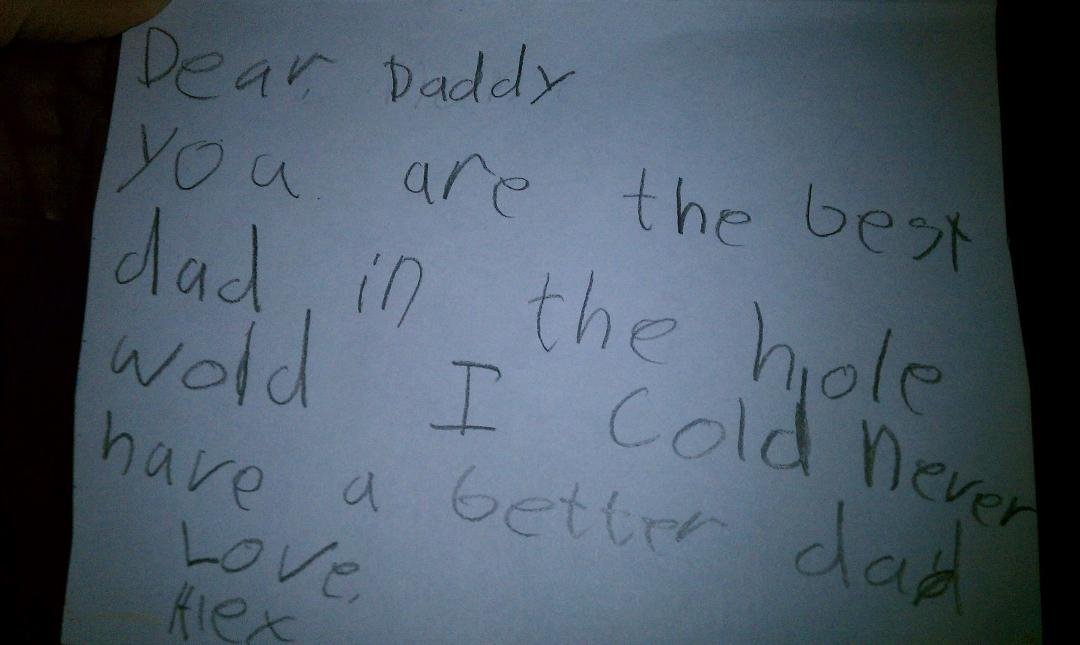 Dear, Daddy
you are the best
dad in the hole
wold I cold never
have a better dad
Love,
Alex